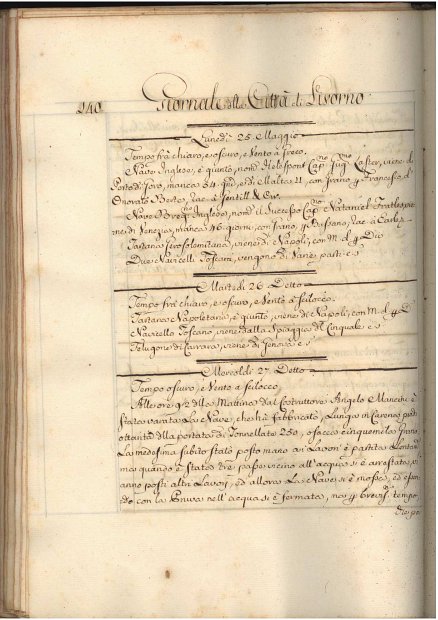 240 Giornale della Città di Livorno
Lunedì 25 Maggio
Tempo frà chiaro, e oscuro, e Vento à Greco.
Nave Inglese, è giunto, nom.º Cap.no Laster, viene di
Porto di manca 34 giri, e di Malta 21, con Grano, p Francesco, d
Onorato Berte, rac. à Gentill & Co.
Nave Breg. Inglese, nom.º il Sucesso Cap.no Nataniel
ne di Venezia, manca 46 giorni, con Grano, p Bassano, rac. à
Tartana Gerosolomitana, viene di Napoli, con M. d. p Div.
Due Navicelli Toscani, vengono di Varie parti e s
Martedì 26 Detto
Tempo frà chiaro, e oscuro, e Vento à scilocco.
Tartana Napoletana, è giunto, viene di Napoli, con M. d. p D
Navicello Toscano, viene dalla Spiaggia del Cinquale e s
Felugone di Carrara, viene di Genova e s
Mercoldì 27 Detto
Tempo oscuro, e Vento à scilocco,
Alle ore 9 1/2 della Mattina dal Costruttore Angelo è
stata varata La Nave, che hà fabbricato, Lunga in Carena piedi
ottanta della portata di Tonnellate 250, o siano cinquemila
La medesima subito stato posto mano ai Lavori è partita
ma quando è stata tre passi vicino all'acqua si è arrestata,
anno posti altri Lavori, ed allora La Nave si è mossa, ed
do con la Pruva nell'acqua si è fermata, ma p breviss. tempo,